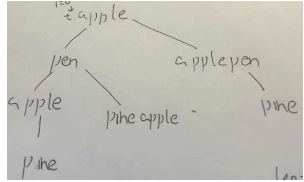 i=0
apple
pen applepen
apple pineapple pine
pine
len=